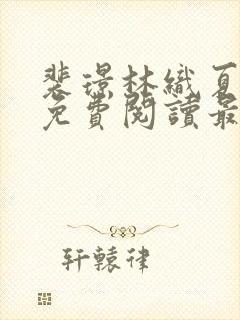 裴璟林織夏
免費閱讀最
轩辕律